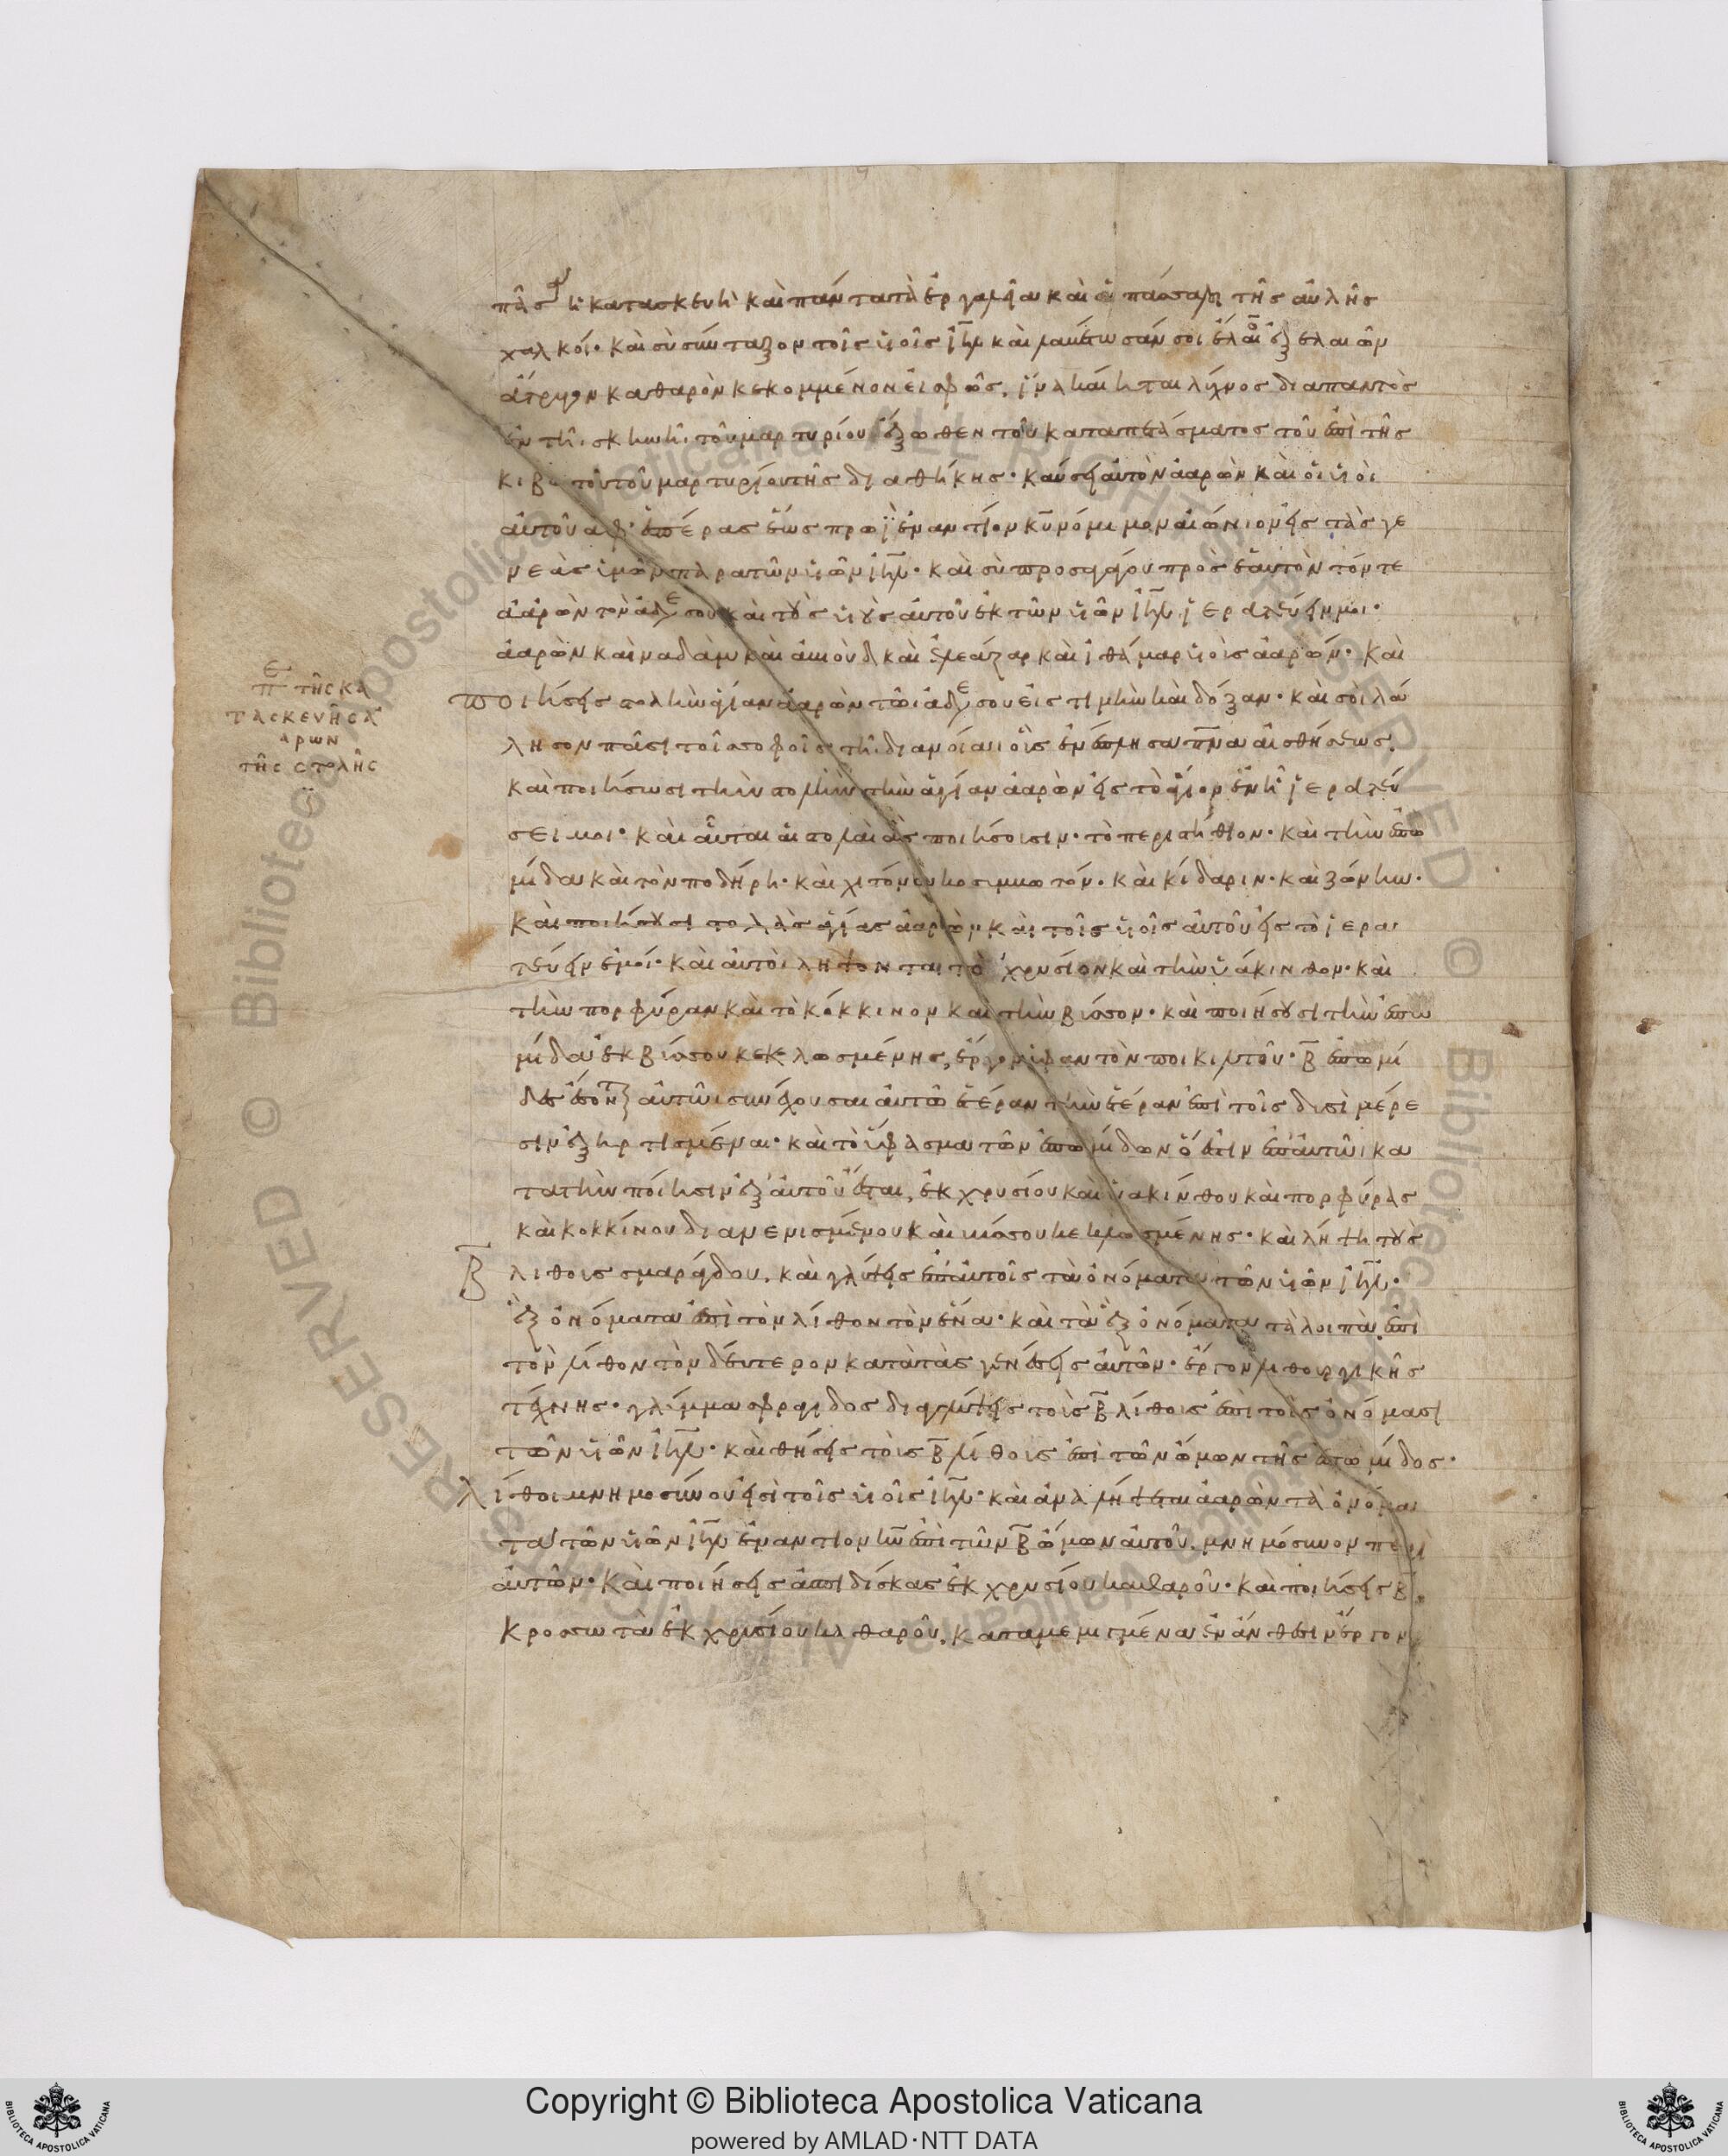 πᾶσα ἡ κατασκευὴ καὶ πάντα τὰ ἐργαλεῖα καὶ οἱ πάσσαλοι τῆς αὐλῆς
χαλκοί· καὶ σὺ σύνταξον τοῖς υἱοῖς ἰη̅λ καὶ λαβέτωσάν σοι ἔλαιον ἐξ ἐλαιῶν
ἄτρυγον καθαρὸν κεκομμένον εἰς φῶς, ἵνα καίηται λύχνος διαπαντὸς
ἐν τῆι σκηνῆι τοῦ μαρτυρίου ἔξωθεν τοῦ καταπετάσματος τοῦ ἐπὶ τῆς
τοῦ μαρτυρίου τῆς διαθήκης· καύσει αὐτὸν ἀαρὼν καὶ οἱ υἱοὶ
αὐτοῦ ἀφ' ἑσπέρας ἕως πρωῒ ἐναντίον κ̅υ νόμιμον αἰώνιον εἰς τὰς γε
νεὰς ὑμῶν παρα τῶν υἱῶν ἰη̅λ· καὶ σὺ προσαγάγου πρὸς ἑαυτὸν τόν τε
ἀαρὼν τὸν ἀδε σου καὶ τοὺς υἱοὺς αὐτοῦ ἐκ τῶν υἱῶν ἰη̅λ ἱερατεύειν μοι·
ἀαρὼν καὶ ναδὰμ καὶ ἀβιοὺδ καὶ ἐλεάζαρ καὶ ἰθάμαρ υἱοὶς ἀαρών· καὶ
ποιήσεις στολὴν ἁγίαν ἀαρὼν τῶι ἀδε σου εἰς τιμὴν καὶ δόξαν· καὶ σοὶ λά
λησον πᾶσι τοῖς σοφοῖς τῆι διανοίαι οἷς ἐνέπλησα π̅ν̅α αἰσθήσεως.
καὶ ποιήσωσι τὴν στολὴν τὴν ἁγίαν ἀαρὼν εἰς τὸ ἅγιον ἐν ἧ ἱερατεύ
σει μοι· καὶ αὗται αἱ στολαὶ ἃς ποιήσοισιν· τὸ περιστήθιον· καὶ τὴν ἐπω
μίδα καὶ τὸν ποδήρη· καὶ χιτόνα κοσυμβωτόν· καὶ κίδαριν· καὶ ζώνην·
καὶ ποιήσουσι στολὰς ἁγίας ἀαρὼν καὶ τοῖς υἱοῖς αὐτοῦ εἰς τὸ ἱερα
τεύειν ἐμοί· καὶ αὐτοὶ λήψονται τὸ χρυσίον καὶ τὴν ὑάκινθον· καὶ
τὴν πορφύραν καὶ τὸ κόκκινον καὶ τὴν βύσσον· καὶ ποιήσουσι τὴν ἐπω
μίδα ἐκ βύσσου κεκλωσμένης, ἔργον ὑφαντὸν ποικιλτοῦ· β̅ ἐπωμί
δες αὐτῶι συνέχουσαι αὐτῶ ἑτέραν τὴν ἑτέραν ἐπὶ τοῖς δυσὶ μέρε
σιν ἐξηρτισμέναι· καὶ τὸ ὕφασμα τῶν ἐπωμίδων ὅ ἐστιν ἐπ' αὐτῶι κα
τὰ τὴν ποίησιν ἐξ αὐτοῦ ἔσται, ἐκ χρυσίου καὶ ὑακίνθου καὶ πορφύρας
καὶ κοκκίνου διανενισμένου καὶ βύσσου κεκλωσμένης· καὶ λήψη τοὺς
β̅ λίθοις σμαράγδου, καὶ γλύψεις ἐπ' αὐτοῖς τὰ ὀνόματα τῶν υἱῶν ἰη̅λ·
ἓξ ὀνόματα ἐπὶ τὸν λίθον τὸν ἕνα· καὶ τὰ ἓξ ὀνόματα τὰ λοιπὰ ἐπὶ
τὸν λίθον τὸν δεύτερον κατὰ τὰς γενέσεις αὐτῶν· ἔργον λιθουργικῆς
τέχνης· γλύμμα σφραγίδος διαγλύψεις τοὶς β̅ λίθοις ἐπὶ τοῖς ὀνόμασι
τῶν υἱῶν ἰη̅λ· καὶ θήσεις τοὶς β̅ λίθοις ἐπὶ τῶν ὤμων τῆς ἐπωμίδος·
λίθοι μνημοσύνου εἰσὶ τοῖς υἱοῖς ἰη̅λ· καὶ ἀναλήψεται ἀαρὼν τὰ ὀνόμα
τα τῶν υἱῶν ἰη̅λ ἐναντίον κ̅υ ἐπὶ τῶν β̅ ὤμων αὐτοῦ, μνημόσυνον περὶ
αὐτῶν· καὶ ποιήσεις ἀσπιδίσκας ἐκ χρυσίου καθαροῦ· καὶ ποιήσεις β̅
κροσσωτὰ ἐκ χρυσίου καθαροῦ, καταμεμιγμένα ἐν ἄνθεσιν ἔργον
π τῆς κα
τασκευῆς ἀ
αρων
τῆς στολῆς
Copyright © Biblioteca Apostolica Vaticana
powered by AMLAD·NTT DATA